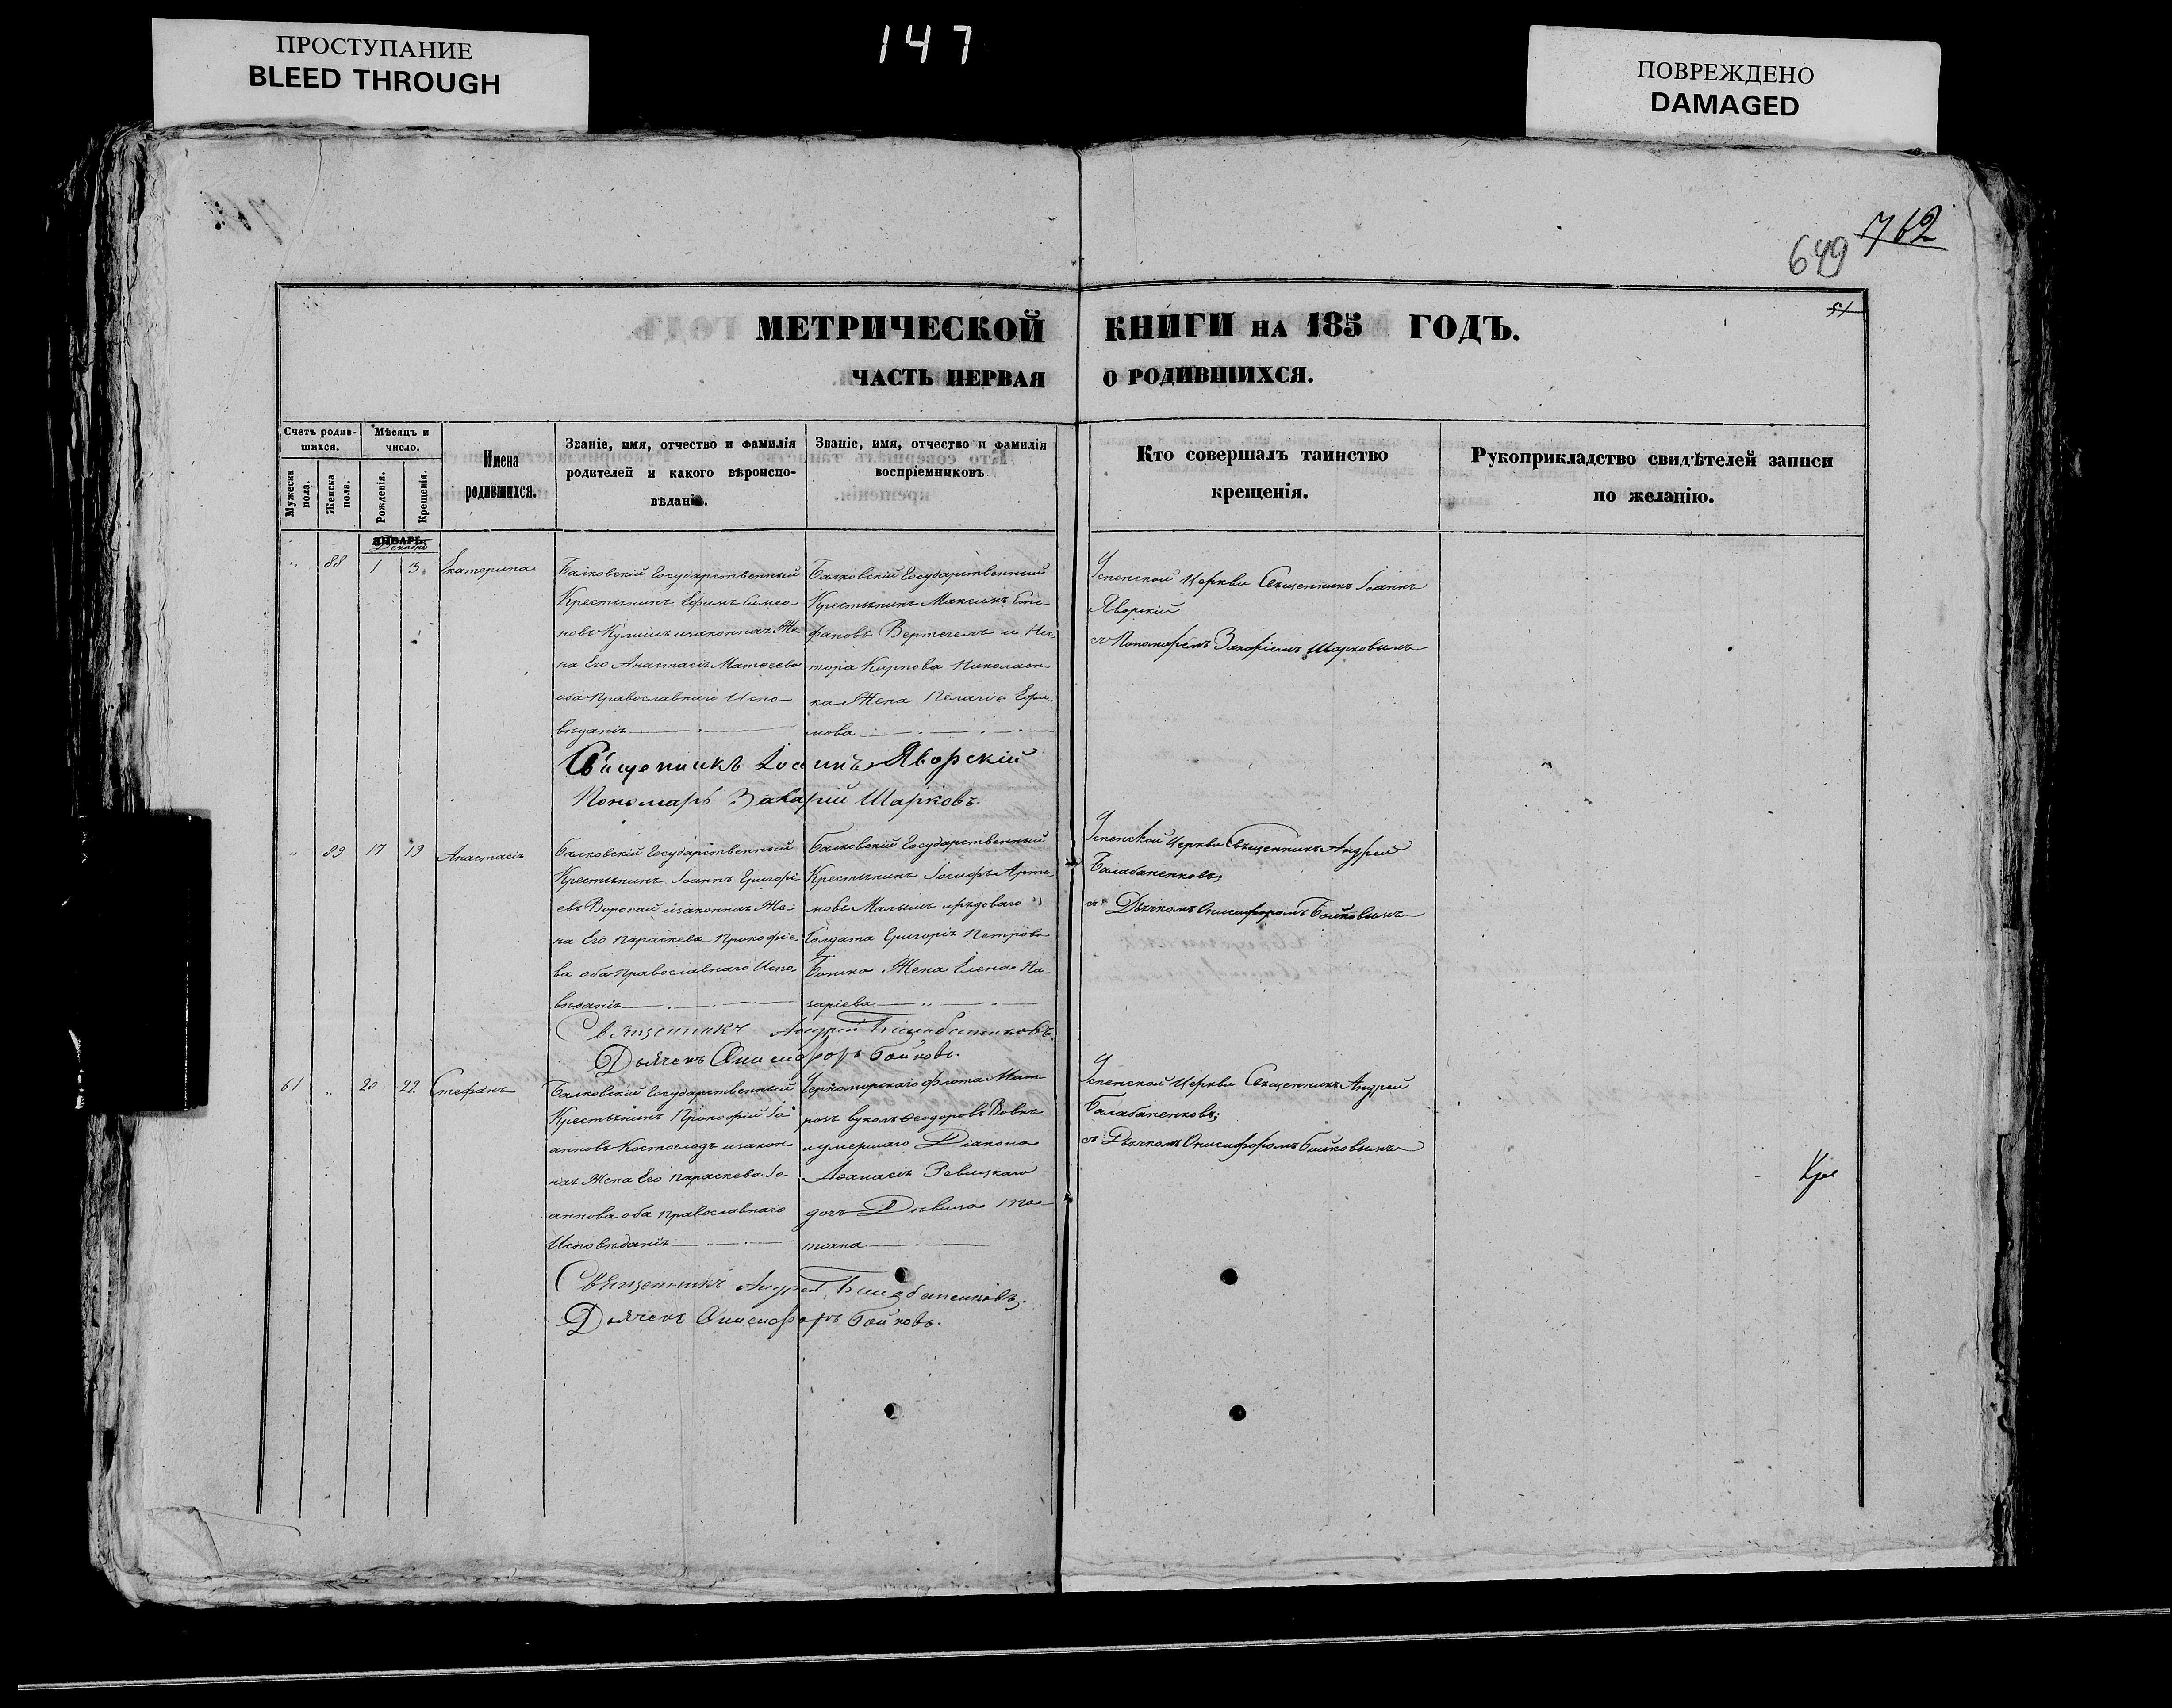 ПРОСТУПАНИЕ
BLEED THROUGH
147
ПОВРЕЖДЕНО
DAMAGED
762
649
51
МЕТРИЧЕСКОЙ КНИГИ НА 185 ГОДЪ.
ЧАСТЬ ПЕРВАЯ О РОДИВШИХСЯ.
Счетъ родив-
шихся.
Мужеска пола.
Женска пола.
Мѣсяцъ и
число.
Рожденія.
Крещенія.
Имена
родившихся.
Званіе, имя, отчество и фамилія
родителей и какого вѣроиспо-
вѣданія.
Званіе, имя, отчество и фамилія
воспріемниковъ
Кто совершалъ таинство
крещенія.
Рукоприкладство свидѣтелей записи
по желанію.
ЯНВАРЬ.
Декабрь
" 88 1 3 Екатерина
Балковскій Государственный
Крестьянинъ Ефимъ Симео-
новъ Кулишъ изаконная Же
на Его Анастасія Матѳеева
оба Православнаго Испо-
вѣданія
Балковскій Государственный
Крестьянинъ Максимъ Сте-
фановъ Вертегелъ и
Карпова Николаен-
ка Жена Пелагія Ефи-
мова
Успенской Церкви Священникъ Іоаннъ
Яворскій
съ Пономаремъ Захаріемъ Шарковымъ
Священникъ Іоаннъ Яворскій
Пономарь Захарій Шарковъ.
" 89 17 19 Анастасія
Балковскій Государственный
Крестьянинъ Іоаннъ Григорі-
евъ Воропай изаконная Же-
на Его Параскева Прокофіе-
ва оба Православнаго Испо-
вѣданія
Балковскій Государственный
Крестьянинъ Іосифъ Арте-
мовъ Малышъ ирядоваго
Солдата Григорія Петрова
Бошко Жена Елена На-
заріева
Успенской Церкви Священникъ Андрей
Балабаненковъ;
съ Дьячкомъ Онисифоромъ Бойковымъ
Священникъ Андрей Балабаненковъ.
Дьячекъ Онисифоръ Бойковъ.
61 " 20 22 Стефанъ
Балковскій Государственный
Крестьянинъ Прокофій Іо-
анновъ Костоглодъ изакон-
ная Жена Его Параскева Іо-
аннова оба Православнаго
Исповѣданія
Черноморскаго флота Мат-
росъ Вуколъ Ѳеодоровъ Вовкъ
иумершаго Діакона
Аѳанасія Ревицкаго
дочь Дѣвица Та-
тіана
Успенской Церкви Священникъ Андрей
Балабаненковъ;
съ Дьячкомъ Онисифоромъ Бойковымъ
Священникъ Андрей Балабаненковъ;
Дьячекъ Онисифоръ Бойковъ.